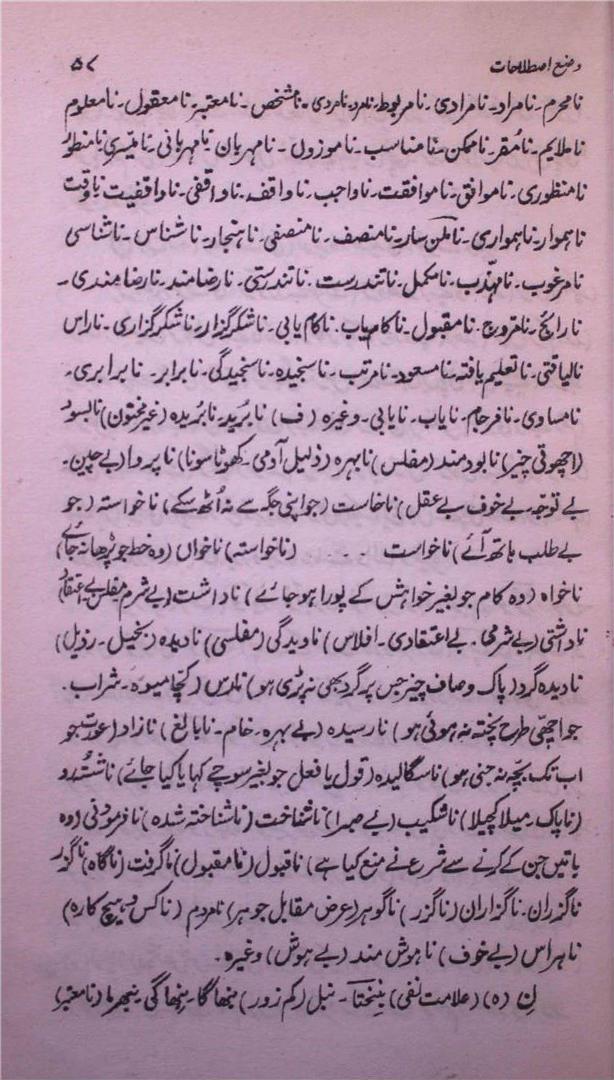 وضع اصطلاحات ۵۷
نامحرم۔ نامراد۔ نامرادی۔ نامربوط۔ نامرد۔ نامردی۔ نامشخص۔ نامعتبر۔ نامعقول۔ نامعلوم
ناملایم۔ نامُقر۔ ناممکن۔ نامناسب۔ ناموزوں۔ نامہربان۔ نامہربانی۔ نامنظور
نامنظوری۔ ناموافق۔ ناموافقت۔ ناواجب۔ ناواقف۔ ناواقفی۔ ناواقفیت۔ ناوقت
ناہموار۔ ناہمواری۔ ناملن سار۔ نامنصف۔ نامنصفی۔ ناہنجار۔ ناشناس۔ ناشناسی
نامرغوب۔ نامہذّب۔ نامکمل۔ ناتندرست۔ ناتندرستی۔ نارضامند۔ نارضامندی۔
نارائج۔ نامروج۔ نامقبول۔ ناکامیاب۔ ناکام یابی۔ ناشکرگزار۔ ناشکرگزاری۔ ناراس
نالیاقتی۔ ناتعلیم یافتہ۔ نامسعود۔ نامرتب۔ ناسنجیدہ۔ ناسنجیدگی۔ نابرابر۔ نابرابری۔
نامساوی۔ نافرجام۔ نایاب۔ نایابی۔ وغیرہ (ف) نابُرید۔ نابُریدہ (غیرمختون) نابسود
(اچھوتی چیز) نابودمند (مفلس) نابہرہ (ذلیل آدمی۔ کھوٹا سونا) ناپروا (بے چین۔
بے توجّہ۔ بے خوف۔ بے عقل) ناخاست (جو اپنی جگہ سے نہ اُٹھ سکے) ناخواستہ (جو
بے طلب ہاتھ آئے) ناخواست ۔ ۔ ۔ ۔ (ناخواستہ) ناخواں (وہ خط جو پڑھا نہ جائے)
ناخواہ (وہ کام جو بغیر خواہش کے پورا ہوجائے) ناداشت (بے شرم۔ مفلس۔ بے اعتقاد)
ناداشتی (بے شرمی۔ بے اعتقادی۔ افلاس) نادیدگی (مفلسی) نادیدہ (بخیل۔ رذیل)
نادیدہ گرد (پاک وصاف چیز جس پر گرد بھی نہ پڑی ہو) نارس (کچا میوہ۔ شراب۔
جو اچھّی طرح پختہ نہ ہوئی ہو) نارسیدہ (بے بہرہ۔ خام۔ نابالغ) نازاد (عورت جو
اب تک بچّہ نہ جنی ہو) ناسگالیدہ (قول یا فعل جو بغیر سوچے کہا یا کیا جائے) ناشُستہ رو
(ناپاک۔ میلا کچیلا) ناشکیب (بے صبرا) ناشناخت (ناشناختہ شدہ) نافرمودنی (وہ
باتیں جن کے کرنے سے شرع نے منع کیا ہے) ناقبول (نامقبول) ناگرفت (ناگاہ) ناگزر
ناگزران۔ ناگزاران (ناگزر) ناگوہر (عرض مقابل جوہر) نامردم (ناکس و ہیچ کارہ)
ناہراس (بے خوف) ناہوش مند (بے ہوش) وغیرہ۔
نِ (ہ) (علامت نفی) نِبل (کم زور) نِبھاگا۔ نِبھاگی۔ (نامعتبر)